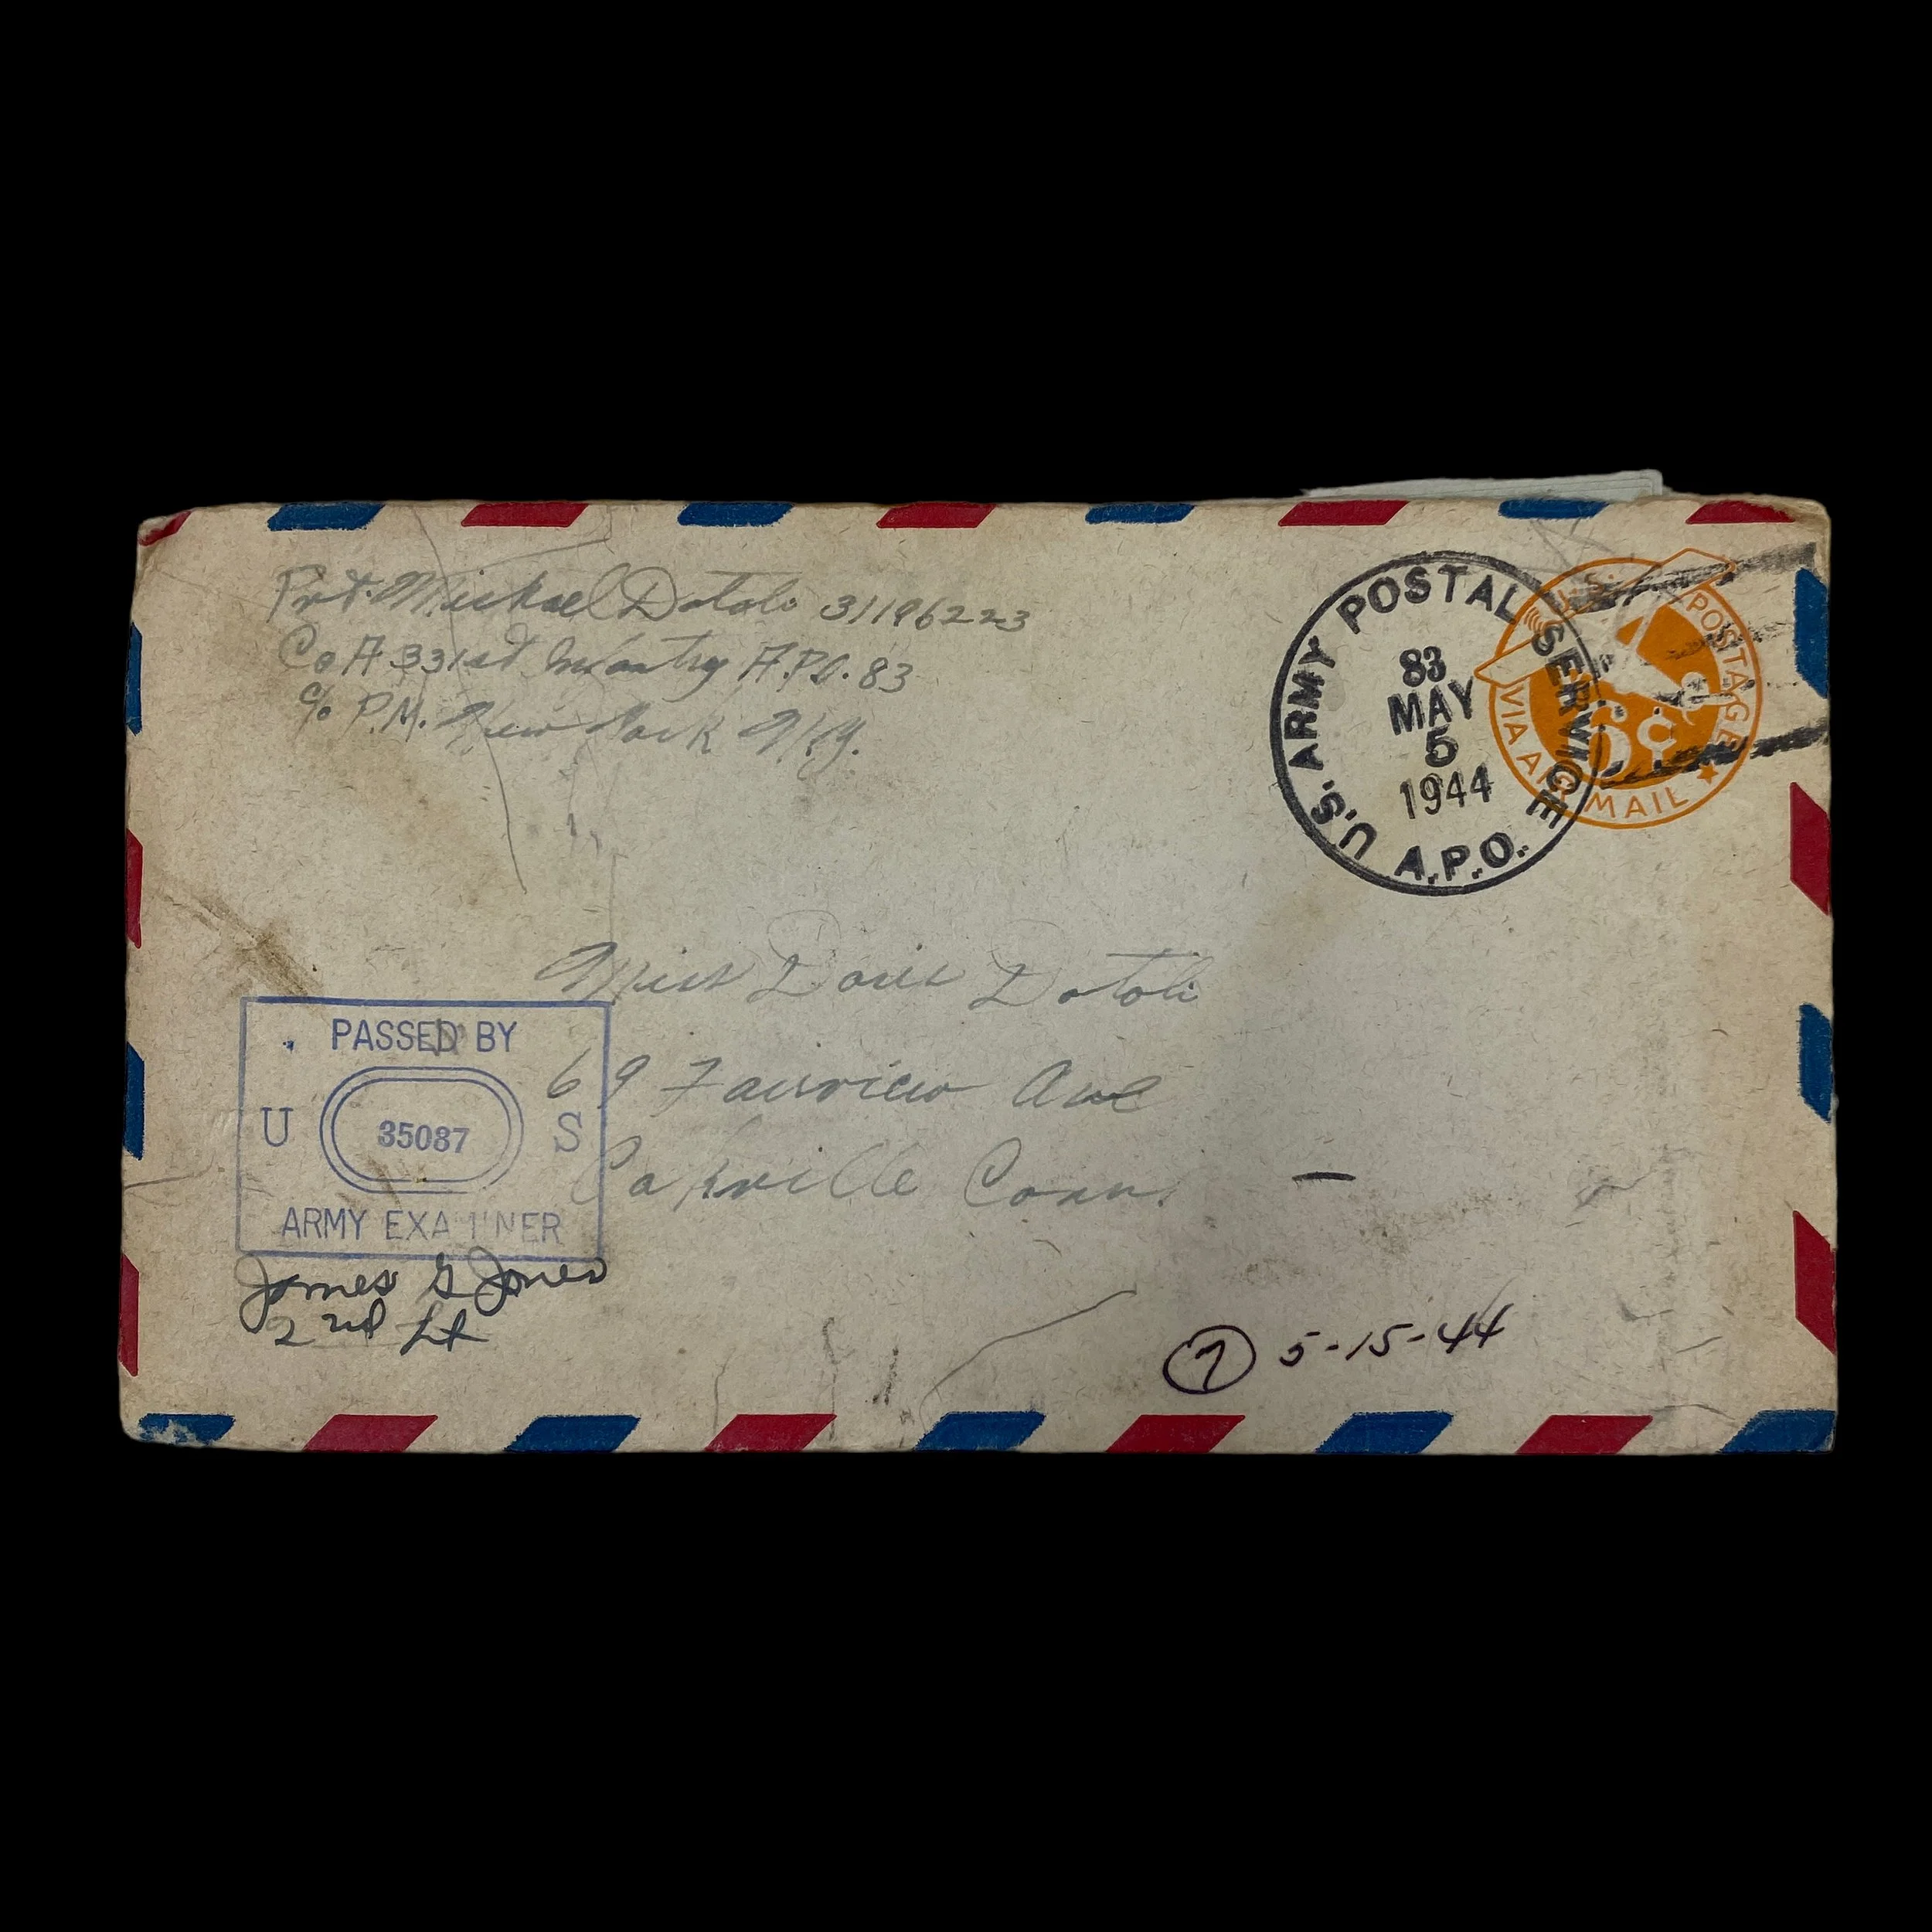 Pvt. Michael Datoli 31196223
Co A 331st Infantry A.P.O. 83
c/o P.M. New York N.Y.
U.S. ARMY POSTAL SERVICE
83
MAY
5
1944
A.P.O.
POSTAGE
6¢
VIA AIR MAIL
Miss Doris Datoli
69 Fairview Ave
Oakville Conn.
PASSED BY
U 35087 S
ARMY EXAMINER
James G Jones
2nd Lt
7 5-15-44